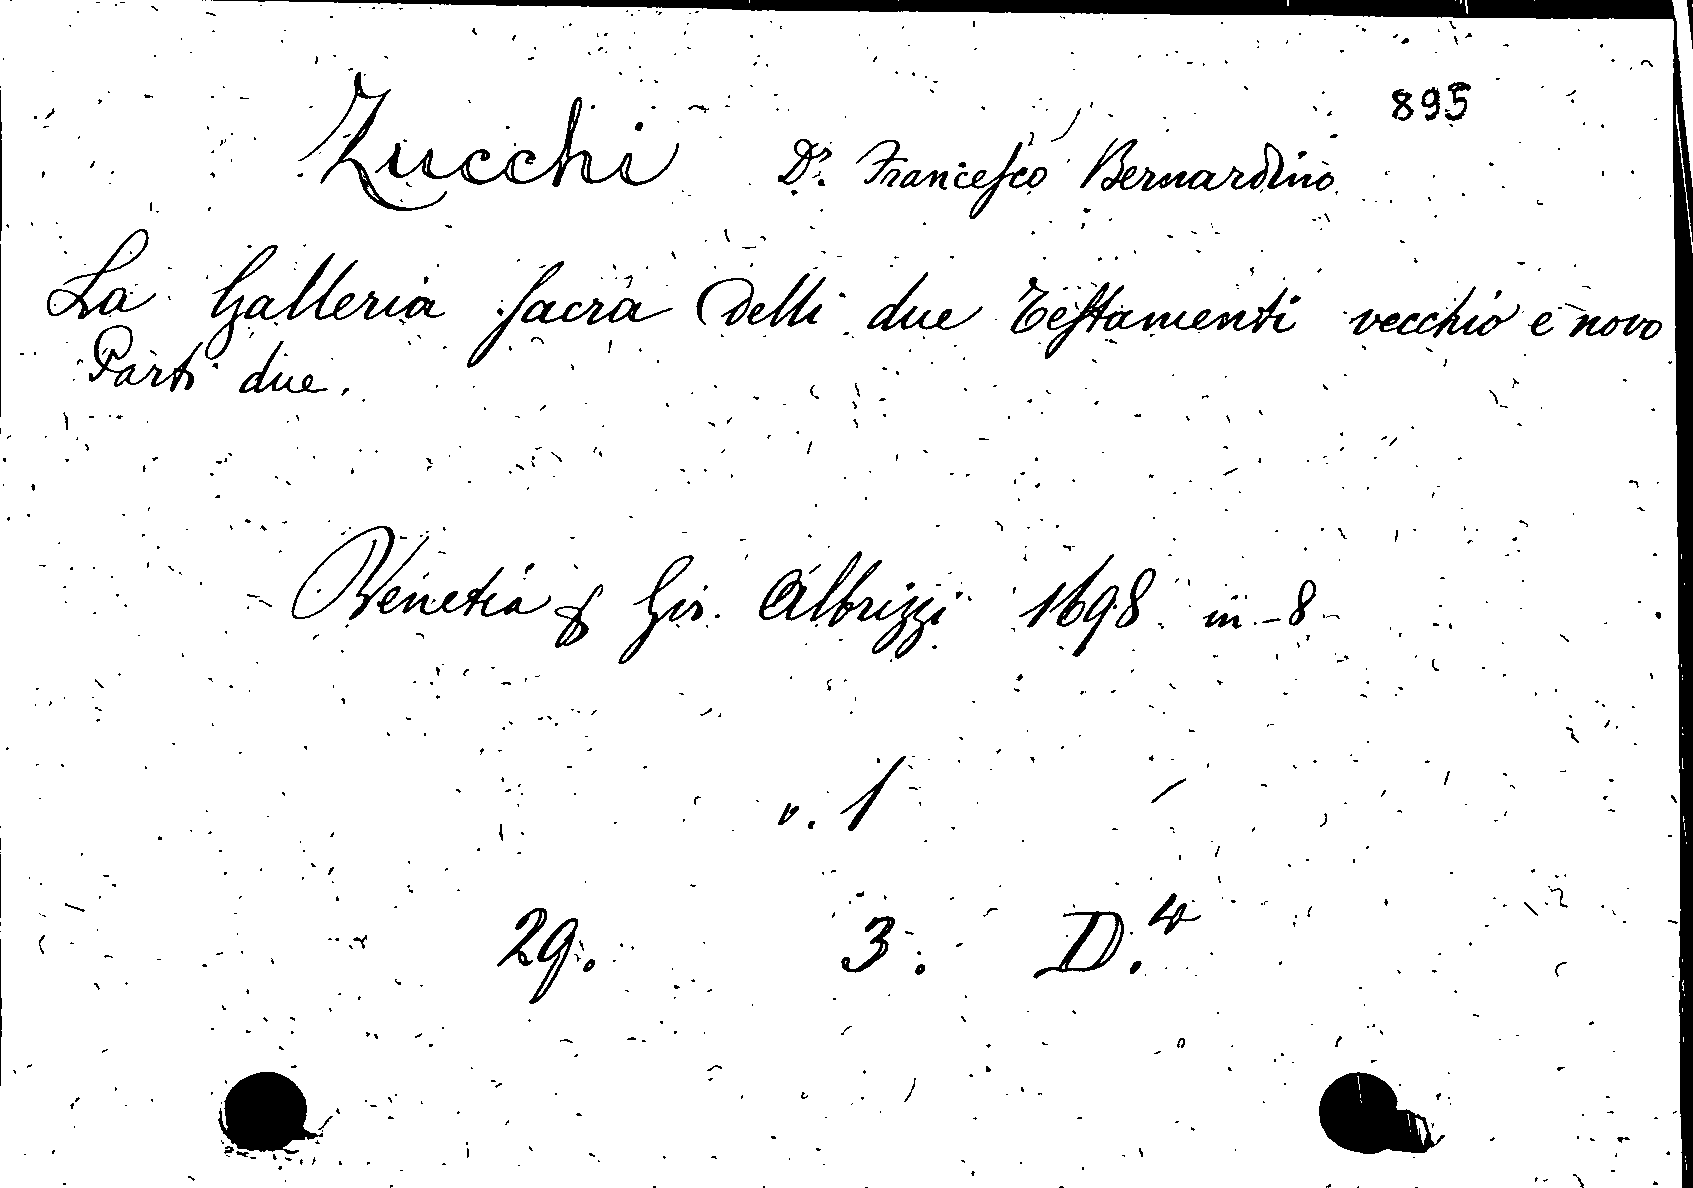 895
Zucchi D.r Francesco Bernardino
La Galleria sacra delli due Testamenti vecchio e novo
Parti due.
Venetia Gir. Albrizzi 1698 in-8
v. 1
29. 3. D.4